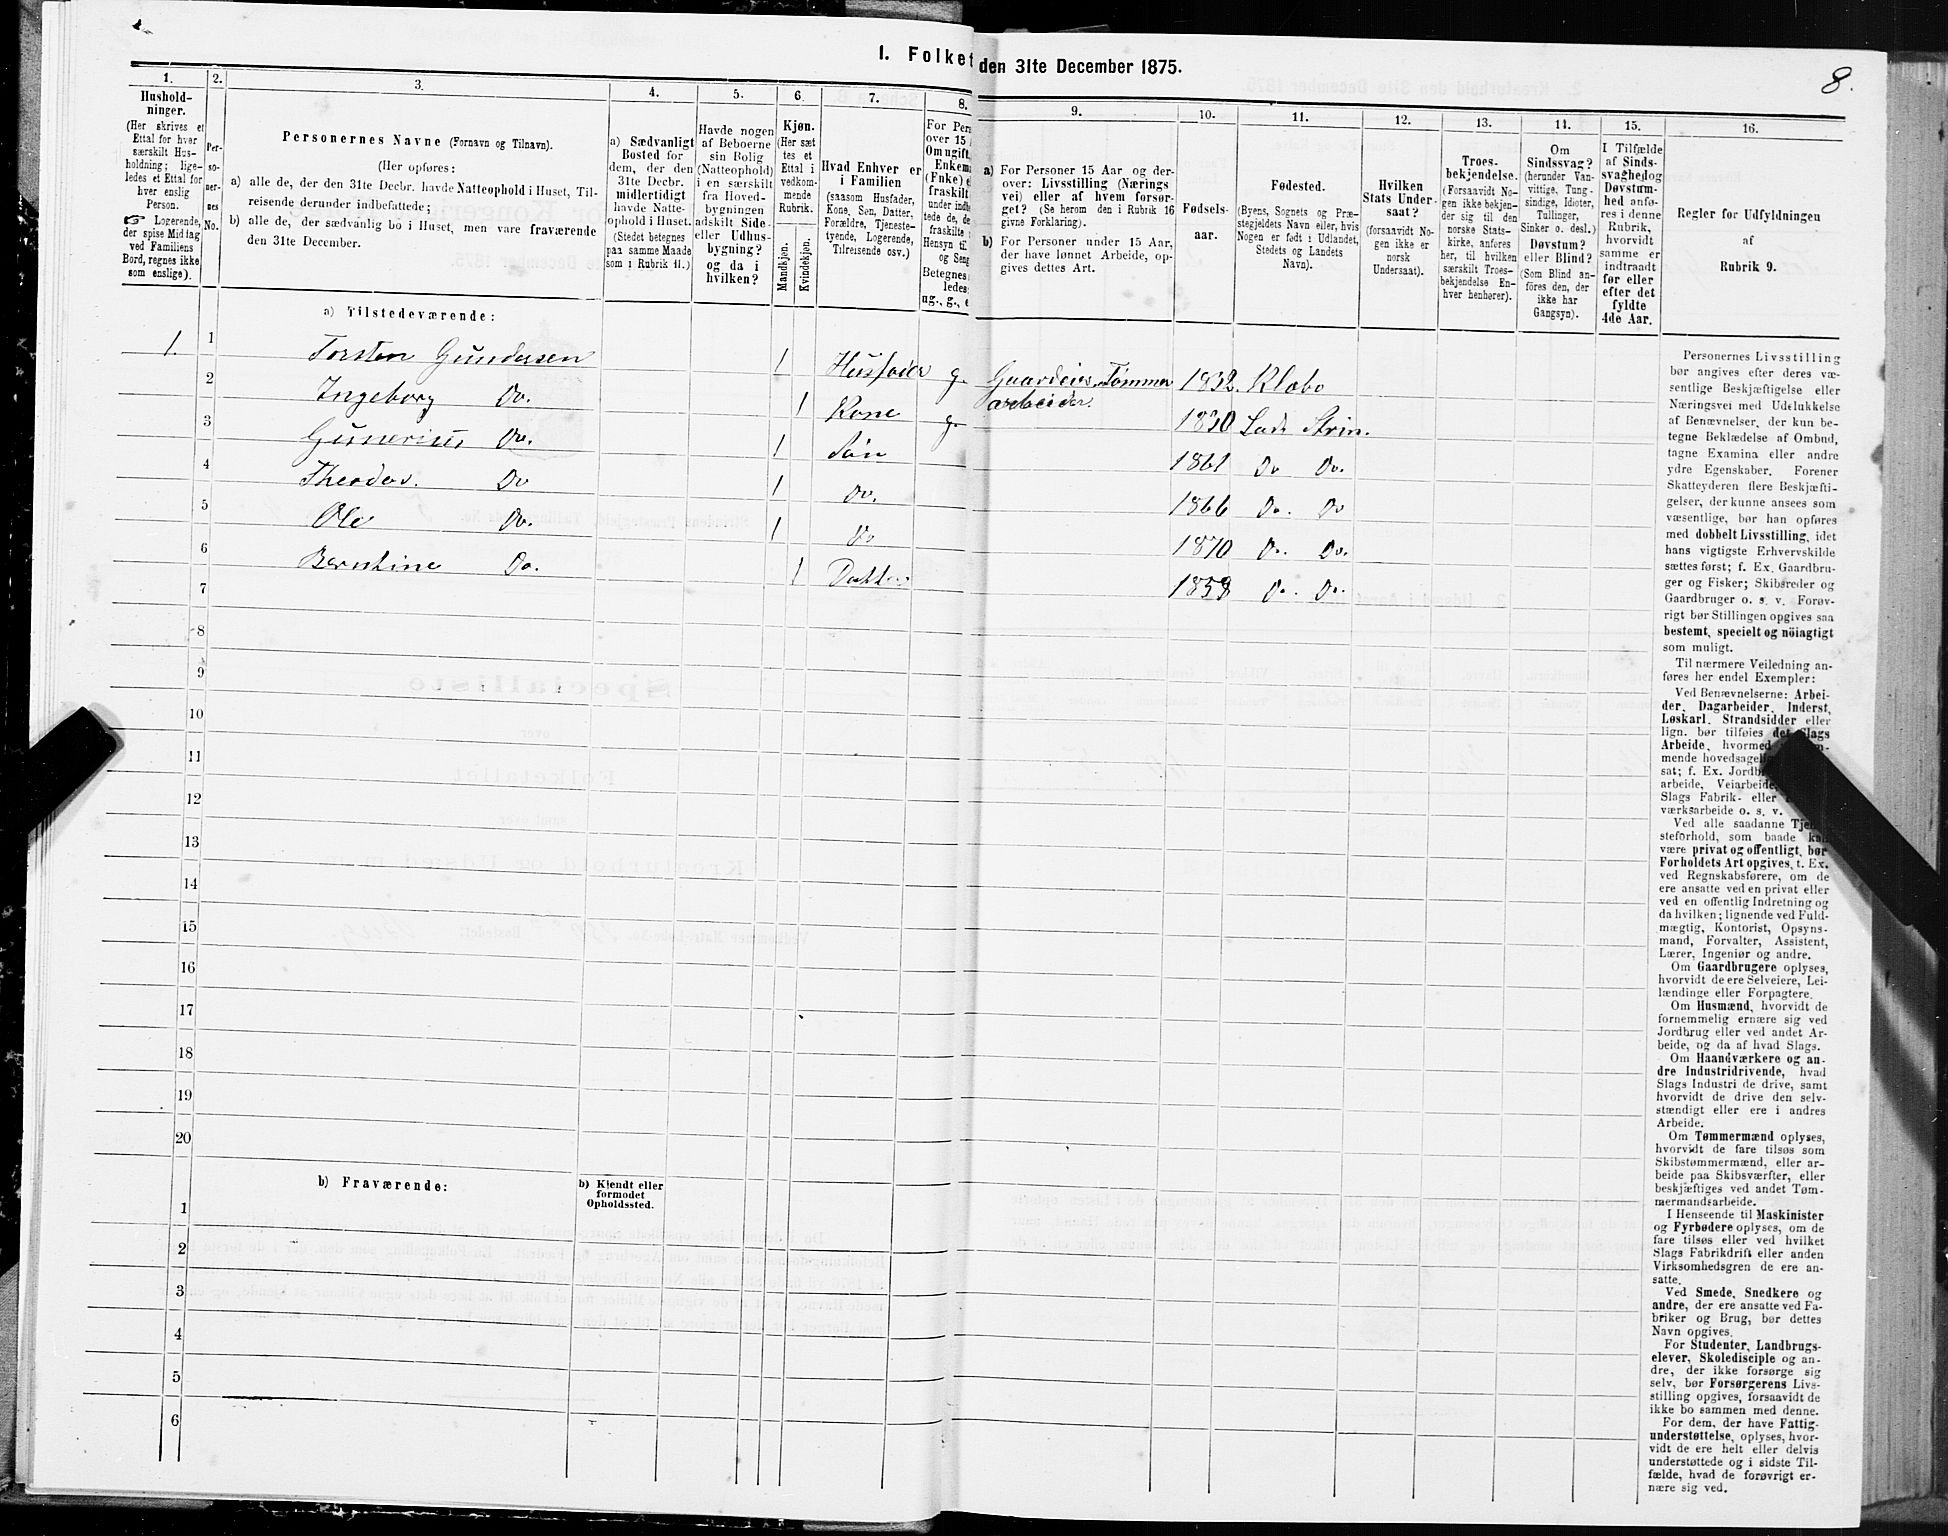 I. Folketal den 31te December 1875.
8.
1.
Hushold-
ninger.
(Her skrives et
Ettal for hver
særskilt Hus-
holdning; lige-
ledes et Ettal for
hver enslig
Person.
☞ Logerende,
der spise Middag
ved Familiens
Bord, regnes ikke
som enslige).
2.
Per-
so-
ner-
nes
No.
3.
Personernes Navne (Fornavn og Tilnavn).
(Her opføres:
a) alle de, der den 31te Decbr. havde Natteophold i Huset, Til-
reisende derunder indbefattede;
b) alle de, der sædvanlig bo i Huset, men vare fraværende
den 31te December.
4.
a) Sædvanligt
Bosted for
dem, der den
31te Decbr.
midlertidigt
havde Natte-
ophold i Huset.
(Stedet betegnes
paa samme Maade
som i Rubrik 11.)
5.
Havde nogen
af Beboerne
sin Bolig
(Natteophold)
i en særskilt
fra Hoved-
bygningen
adskilt Side-
eller Udhus-
bygning?
og da i
hvilken?
6.
Kjøn.
(Her sæt-
tes et
Ettal i
vedkom-
mende
Rubrik.
Mandkjøn.
Kvindekjøn.
7.
Hvad Enhver er
i Familien
(saasom Husfader,
Kone, Søn, Datter,
Forældre, Tjeneste-
tyende, Logerende,
Tilreisende osv.)
8.
For Per
over 15
Om ugift,
Enkem
(Fnke) e
fraskilt
under indbe
tede de, de
fraskilte
Hensyn til
og Seng
Betegnes
ledes:
ug., g., e
9.
a) For Personer 15 Aar og der-
over: Livsstilling (Nærings-
vei) eller af hvem forsør-
get? (Se herom den i Rubrik 16
givne Forklaring).
b) For Personer under 15 Aar,
der have lønnet Arbeide, op-
gives dettes Art.
10.
Fødsels-
aar.
11.
Fødested.
(Byens, Sognets og Præ-
stegjeldets Navn eller, hvis
Nogen er født i Udlandet,
Stedets og Landets
Navn).
12.
Hvilken
Stats Under-
saat?
(forsaavidt No-
gen ikke er
norsk
Undersaat).
13.
Troes-
bekjendelse.
(Forsaavidt No-
gen ikke bekjen-
der sig til den
norske Stats-
kirke, anføres
her, til hvilken
særskilt Troes-
bekjendelse En-
hver henhører).
14.
Om
Sindssvag?
(herunder Van-
vittige, Tung-
sindige, Idioter,
Tullinger,
Sinker o. desl.)
Døvstum?
eller Blind?
(Som Blind an-
föres den, der
ikke har
Gangsyn).
15.
I Tilfælde
af Sinds-
svaghed og
Døvstum-
hed anfø-
res i denne
Rubrik,
hvorvidt
samme er
indtraadt
før eller
efter det
fyldte
4de Aar.
16.
Regler for Udfyldningen
af
Rubrik 9.
a) Tilstedeværende:
1. 1 Torsten Gundersen 1 Husfader g. Gaardeier, Tømmer arbeider. 1832. Klæbo
2 Ingeborg Do. 1 Kone g. 1830 Lade Strin.
3 Gunerius Do. 1 Søn 1861 Do Do.
4 Theodor. Do 1 Do. 1866 Do. Do
5 Ole Do. 1 Do 1870 Do. Do.
6 Berntine Do. 1 Datter 1858 Do. Do.
7
8
9
10
11
12
13
14
15
16
17
18
19
20
b) Fraværende:
b) Kjendt eller
formodet
Opholdssted.
1
2
3
4
5
6
Personernes Livsstilling
bør angives efter deres væ-
sentlige Beskjæftigelse eller
Næringsvei med Udelukkelse
af Benævnelser, der kun be-
tegne Beklædelse af Ombud,
tagne Examina eller andre
ydre Egenskaber. Forener
Skatteyderen flere Beskjæfti-
gelser, der kunne ansees som
væsentlige, bør han opføres
med dobbelt Livsstilling, idet
hans vigtigste Erhvervskilde
sættes først; f. Ex. Gaardbru-
ger og Fisker; Skibsreder og
Gaardbruger o. s. v. Forøv-
rigt bør Stillingen opgives saa
bestemt, specielt og nöiagtigt
som muligt.
Til nærmere Veiledning an-
føres her endel Exempler:
Ved Benævnelserne: Arbei-
der, Dagarbeider, Inderst,
Løskarl, Strandsidder eller
lign. bør tilføies det Slags
Arbeide, hvormed
mende hovedsagel
sat; f. Ex. Jordbr
arbeide, Veiarbeide,
Slags Fabrik- eller
værksarbeide o. s. v.
Ved alle saadanne Tjen
steforhold, som baade kan
være privat og offentligt, bør
Forholdets Art opgives, t. Ex.
ved Regnskabsførere, om de
ere ansatte ved en privat eller
ved en offentlig Indretning og
da hvilken; lignende ved Fuld-
mægtig, Kontorist, Opsyns-
mand, Forvalter, Assistent,
Lærer, Ingeniør og andre.
Om Gaardbrugere oplyses,
hvorvidt de ere Selveiere, Lei-
lændinge eller Forpagtere.
Om Husmænd, hvorvidt de
fornemmelig ernære sig ved
Jordbrug eller ved andet Ar-
beide, og da af hvad Slags.
Om Haandværkere og an-
dre Industridrivende, hvad
Slags Industri de drive, samt
hvorvidt de drive den selv-
stændigt eller ere i andres
Arbeide.
Om Tømmermænd oplyses,
hvorvidt de fare tilsøs som
Skibstømmermænd, eller ar-
beide paa Skibsværfter, eller
beskjæftiges ved andet Tøm-
mermandsarbeide.
I Henseende til Maskinister
og Fyrbødere oplyses, om de
fare tilsøs eller ved hvilket
Slags Fabrikdrift eller anden
Virksomhedsgren de ere an-
satte.
Ved Smede, Snedkere og
andre, der ere ansatte ved Fa-
briker og Brug, bør dettes
Navn opgives.
For Studenter, Landbrugs-
elever, Skoledisciple og an-
dre, der ikke forsørge sig
selv, bør Forsørgerens Livs-
stilling opgives, forsaavidt de
ikke bo sammen med denne.
For dem, der have Fattig-
understøttelse, oplyses, hvor-
vidt de ere helt eller delvis
understøttede og i sidste Til-
fælde, hvad de forøvrigt er-
nære sig ved.